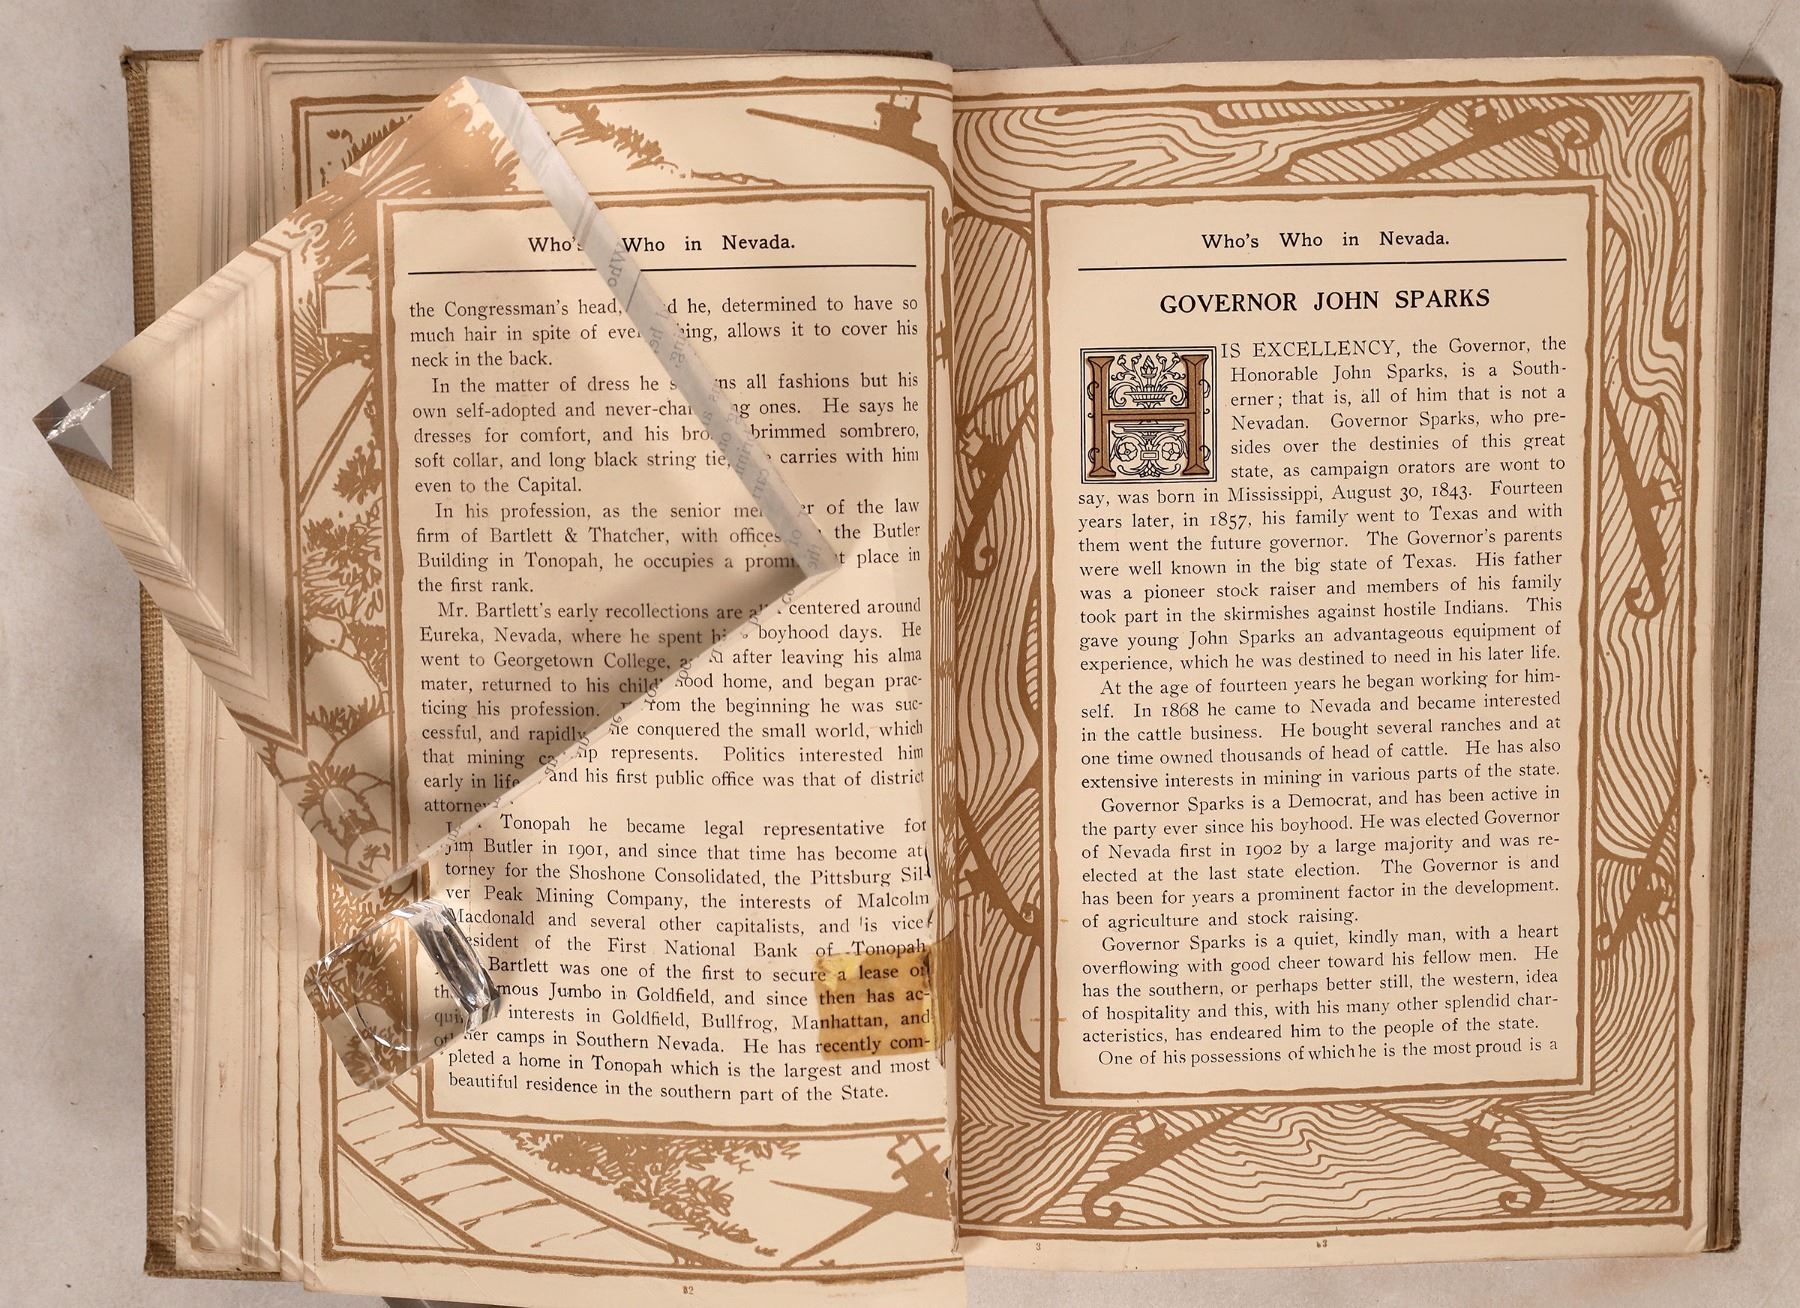 Who's Who in Nevada.
the Congressman's head, he, determined to have so
much hair in spite of allows it to cover his
neck in the back.
In the matter of dress he all fashions but his
own self-adopted and ones. He says he
dresses for comfort, and his brimmed sombrero,
soft collar, and long black string tie, carries with him
even to the Capital.
In his profession, as the senior of the law
firm of Bartlett & Thatcher, with offices the Butler
Building in Tonopah, he occupies a place in
the first rank.
Mr. Bartlett's early recollections are centered around
Eureka, Nevada, where he spent boyhood days. He
went to Georgetown College, after leaving his alma
mater, returned to his home, and began prac-
ticing his profession. From the beginning he was suc-
cessful, and rapidly he conquered the small world, which
that mining represents. Politics interested him
early in life and his first public office was that of district
attorney
Tonopah he became legal representative for
Jim Butler in 1901, and since that time has become at
torney for the Shoshone Consolidated, the Pittsburg Sil-
ver Peak Mining Company, the interests of Malcolm
Macdonald and several other capitalists, and is vice
of the First National Bank of Tonopah
Bartlett was one of the first to secure a lease on
Jumbo in Goldfield, and since then has ac-
interests in Goldfield, Bullfrog, Manhattan, and
camps in Southern Nevada. He has recently com-
pleted a home in Tonopah which is the largest and most
beautiful residence in the southern part of the State.
Who's Who in Nevada.
GOVERNOR JOHN SPARKS
HIS EXCELLENCY, the Governor, the
Honorable John Sparks, is a South-
erner; that is, all of him that is not a
Nevadan. Governor Sparks, who pre-
sides over the destinies of this great
state, as campaign orators are wont to
say, was born in Mississippi, August 30, 1843. Fourteen
years later, in 1857, his family went to Texas and with
them went the future governor. The Governor's parents
were well known in the big state of Texas. His father
was a pioneer stock raiser and members of his family
took part in the skirmishes against hostile Indians. This
gave young John Sparks an advantageous equipment of
experience, which he was destined to need in his later life.
At the age of fourteen years he began working for him-
self. In 1868 he came to Nevada and became interested
in the cattle business. He bought several ranches and at
one time owned thousands of head of cattle. He has also
extensive interests in mining in various parts of the state.
Governor Sparks is a Democrat, and has been active in
the party ever since his boyhood. He was elected Governor
of Nevada first in 1902 by a large majority and was re-
elected at the last state election. The Governor is and
has been for years a prominent factor in the development.
of agriculture and stock raising.
Governor Sparks is a quiet, kindly man, with a heart
overflowing with good cheer toward his fellow men. He
has the southern, or perhaps better still, the western, idea
of hospitality and this, with his many other splendid char-
acteristics, has endeared him to the people of the state.
One of his possessions of which he is the most proud is a